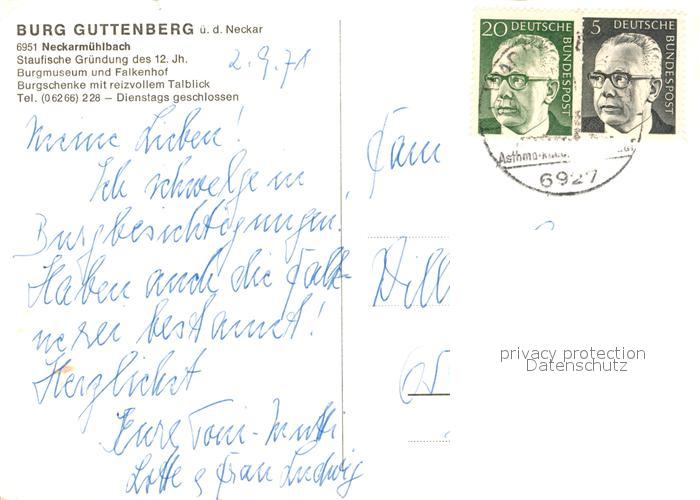 BURG GUTTENBERG ü. d. Neckar
6951 Neckarmühlbach
Staufische Gründung des 12. Jh.
Burgmuseum und Falkenhof
Burgschenke mit reizvollem Talblick
Tel. (06266) 228 – Dienstags geschlossen
2.9.71
Meine Lieben!
Ich schwelge in
Burgbesichtigungen.
Haben auch die Falk-
nerei bestaunt!
Herzlichst
Eure Toni-Mutti
Lotte & Frau Ludwig
20 DEUTSCHE BUNDESPOST
5 DEUTSCHE BUNDESPOST
6927
Fam
Dill
privacy protection
Datenschutz